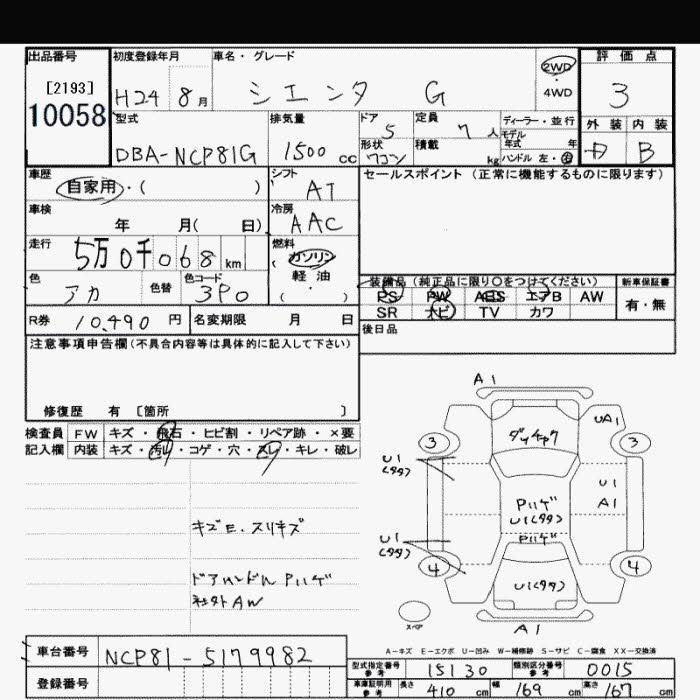 出品番号
[2193]
10058
初度登録年月
H24 8月
車名・グレード
シエンタ G
2WD
・
4WD
評価点
3
外装 内装
B
型式
DBA-NCP81G
排気量
1500 cc
ドア
5
定員
7 人
形状
ワゴン
積載
kg
ディーラー・並行
モデル
年式 年
ハンドル 左・右
車歴
自家用・( )
シフト
AT
車検
年 月( 日)
冷房
AAC
走行
5万0千068 km
燃料
ガソリン
軽油
( ・ )
色
アカ
色替
色コード
3P0
R券 10,490 円
名変期限 月 日
セールスポイント (正常に機能するものに限ります)
装備品 (純正品に限り○をつけてください)
PS PW ABS エアB AW
SR ナビ TV カワ
新車保証書
有・無
後日品
注意事項申告欄(不具合内容等は具体的に記入して下さい)
修復歴 有 〔箇所 〕
検査員
記入欄
FW キズ・飛石・ヒビ割・リペア跡・×要
内装 キズ・汚れ・コゲ・穴・スレ・キレ・破レ
キズE.スリキズ
ドアハンドル Pハゲ
社外AW
A1
UA1
3
3
ダイチャク
U1
(タタ)
U1
A1
Pハゲ
U1(タタ)
Pハゲ
U1
(タタ)
4
4
U1(タタ)
スペア
A1
A-キズ E-エクボ U-凹み W-補修跡 S-サビ C-腐食 XX-交換済
車台番号 NCP81-5179982
登録番号
型式指定番号
参考
15130
類別区分番号
参考
0015
車庫証明用
参考
長さ 410 cm
幅 169 cm
高さ 167 cm